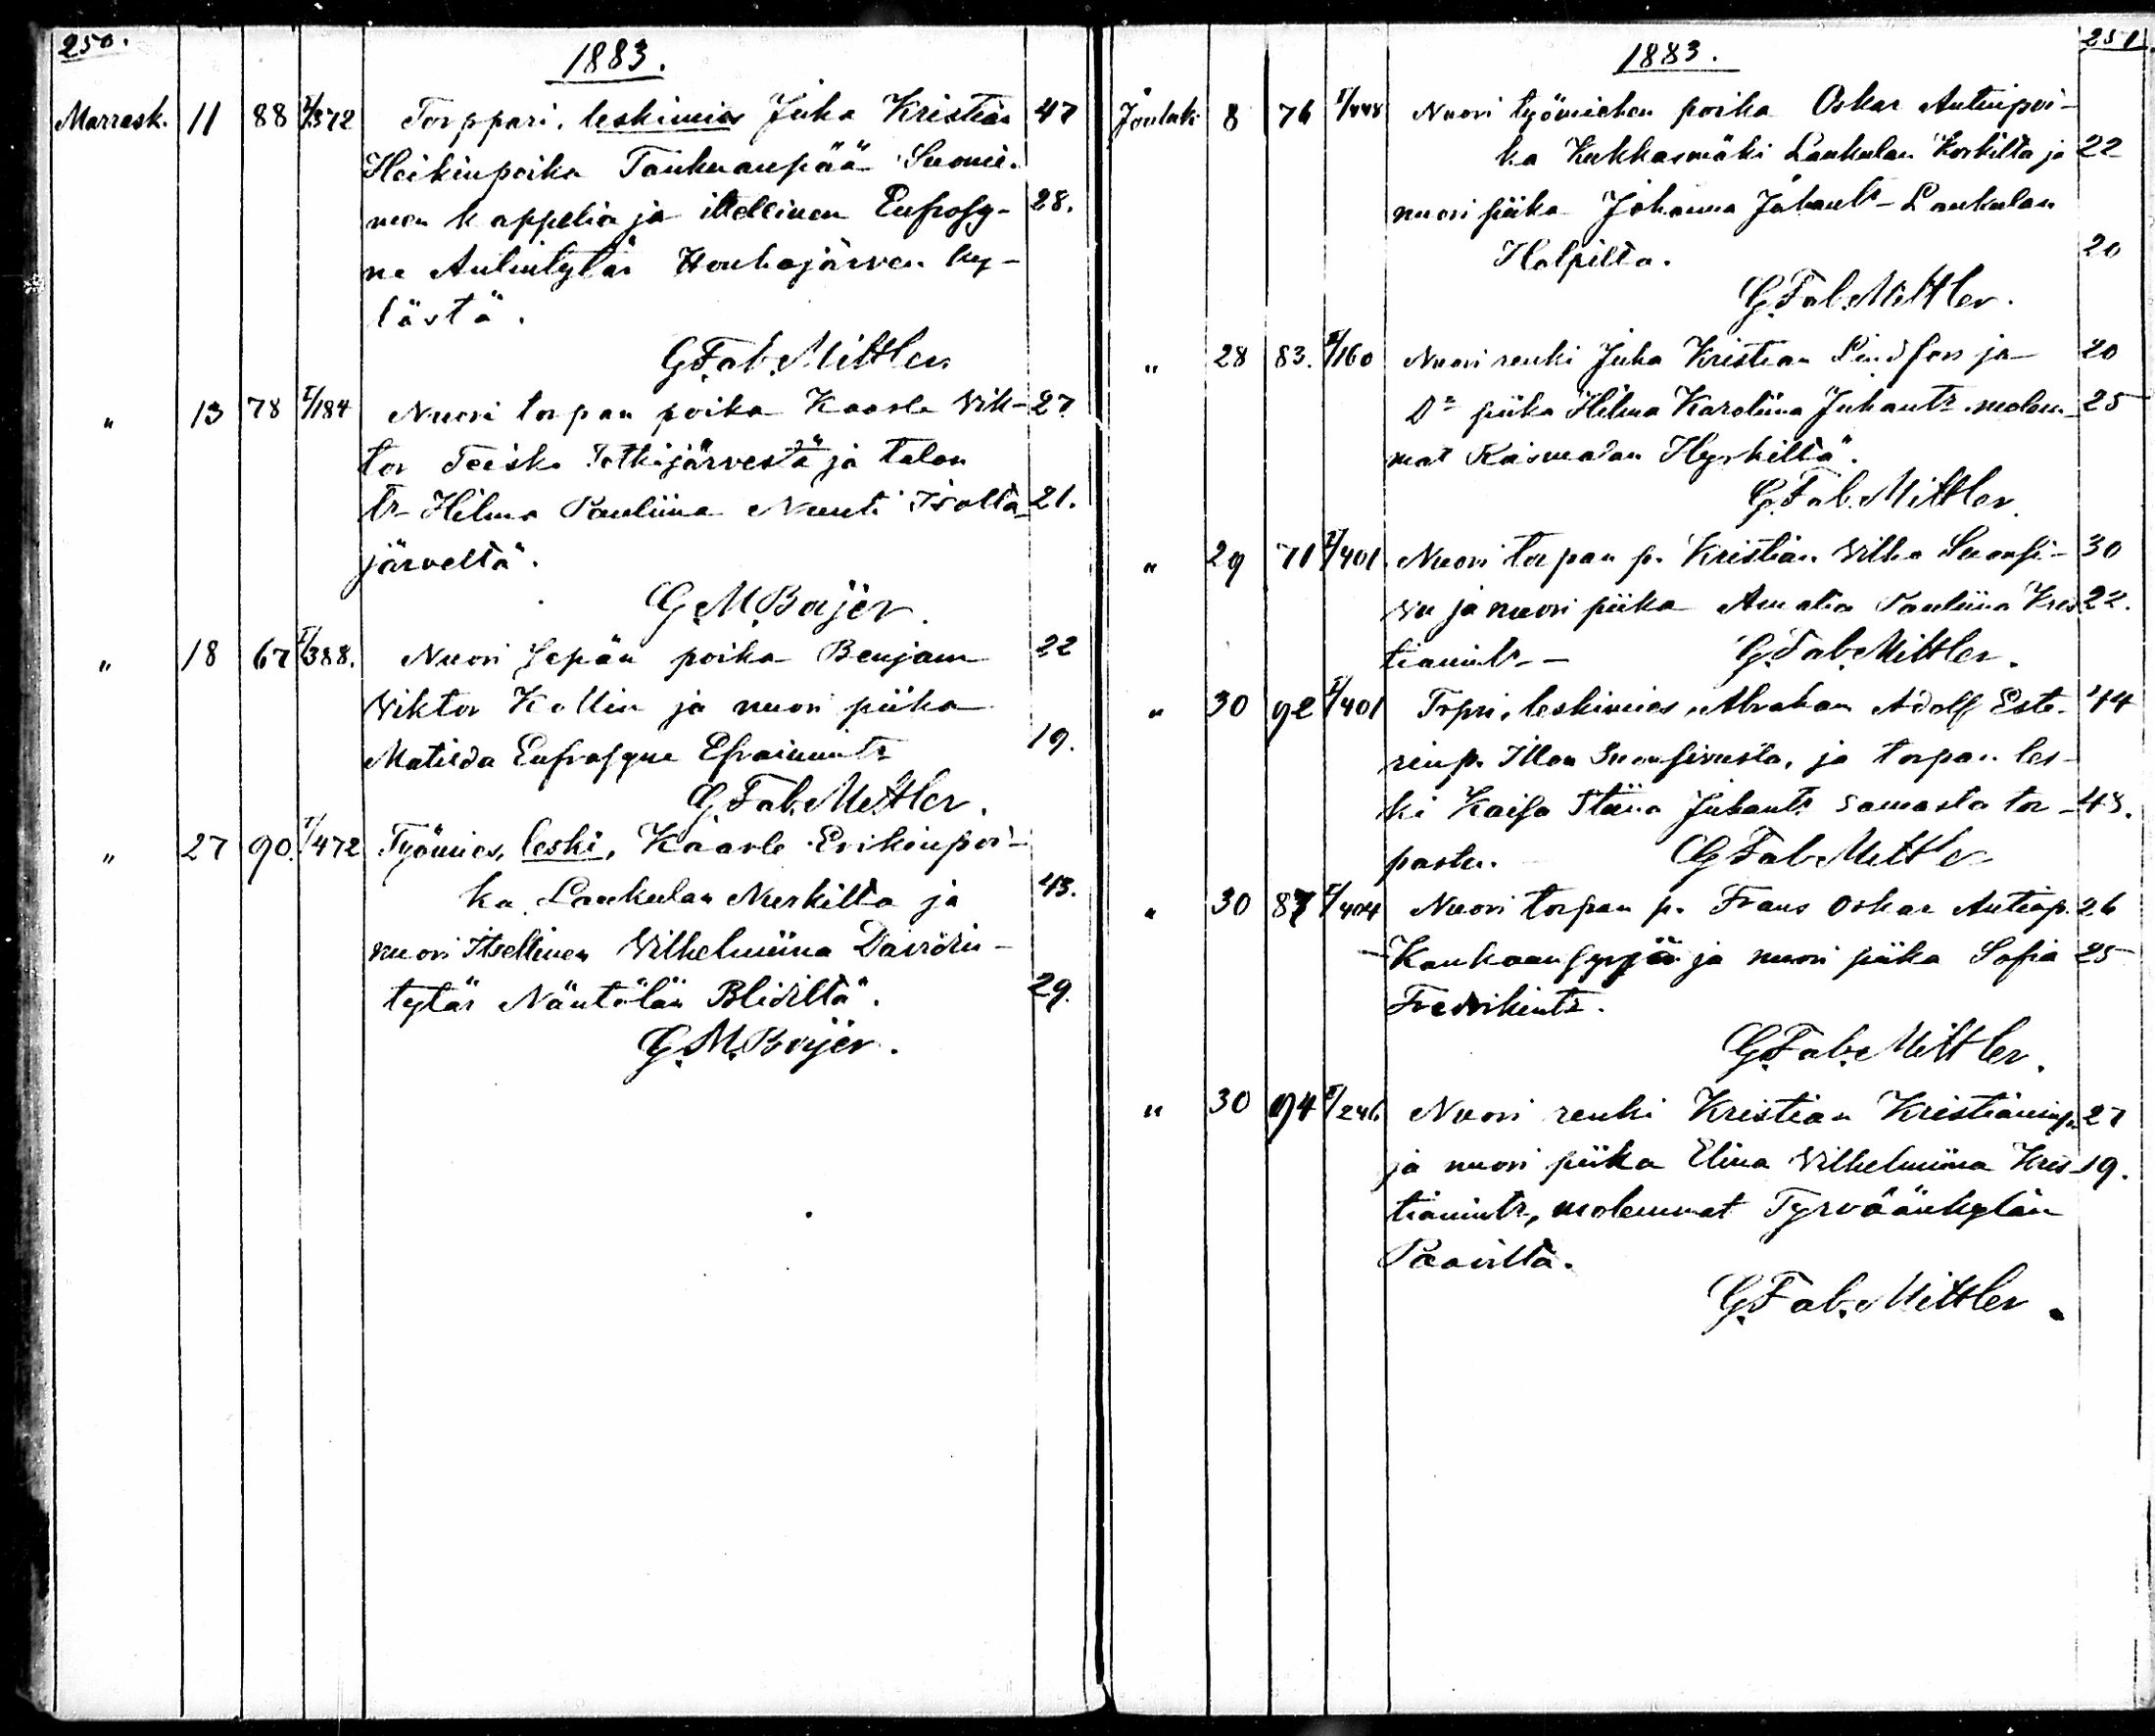 250.
1883.
Marrask. 11 88 I/372 Torppari, leskimies Juha Kristian 47
Heikinpoika Tankuanpää Suonie-
men kappelia ja itsellinen Eufrosy- 28.
ne Antintytär Houhajärven ky-
lästä.
G. Fab. Mittler
" 13 78 I/184 Nuori torpan poika Kaarle Vik- 27
tor Teisko Jotkijärvestä ja talon
tr Hilma Pauliina Nuuti Isolta 21.
järveltä.
G. M. Boijer.
" 18 67 I/388. Nuori sepän poika Benjam 22
Viktor Kollin ja nuori piika
Matilda Eufrosyne Efraimintr 19.
G. Fab. Mittler.
" 27 90. I/472 Työmies, leski, Kaarle Erikinpoi-
ka Laukulan Nurkilta ja 43.
nuori Itsellinen Vilhelmiina Davidin-
tytär Näntölän Blidiltä. 29.
G. M. Boijer.
251
1883.
Jouluk 8 76 I/448 Nuori työmiehen poika Oskar Antinpoi-
ka Kukkasmäki Laukulan Korkilta ja 22
nuori piika Johanna Juhantr Laukulan
Holpilta. 20
G. Fab. Mittler.
" 28 83. I/160 Nuori renki Juha Kristian Lindfors ja 20
Do piika Hilma Karoliina Juhantr molem- 25
mat Kaismalan Hyrkiltä.
G. Fab. Mittler.
" 29 71 I/401 Nuori torpan p. Kristian Vilho Suonsi- 30
vu ja nuori piika Amalia Pauliina Kris 22.
tianintr – G. Fab. Mittler.
" 30 92 I/401 Trpri, leskimies, Abraham Adolf Este- 44
rinp. Illon Suonsivusta, ja torpan les-
ki Kaisa Stiina Juhantr samasta tor- 43.
pasta. G. Fab. Mittler
" 30 87 I/404 Nuori torpan p. Frans Oskar Antinp. 26
Kankaansyrjä ja nuori piika Sofia 25
Fredrikintr.
G. Fab. Mittler.
" 30 94 I/246 Nuori renki Kristian Kristianinp. 27
ja nuori piika Elina Vilhelmiina Kris- 19.
tianintr, molemmat Tyrväänkylän
Paavilta.
G. Fab. Mittler.